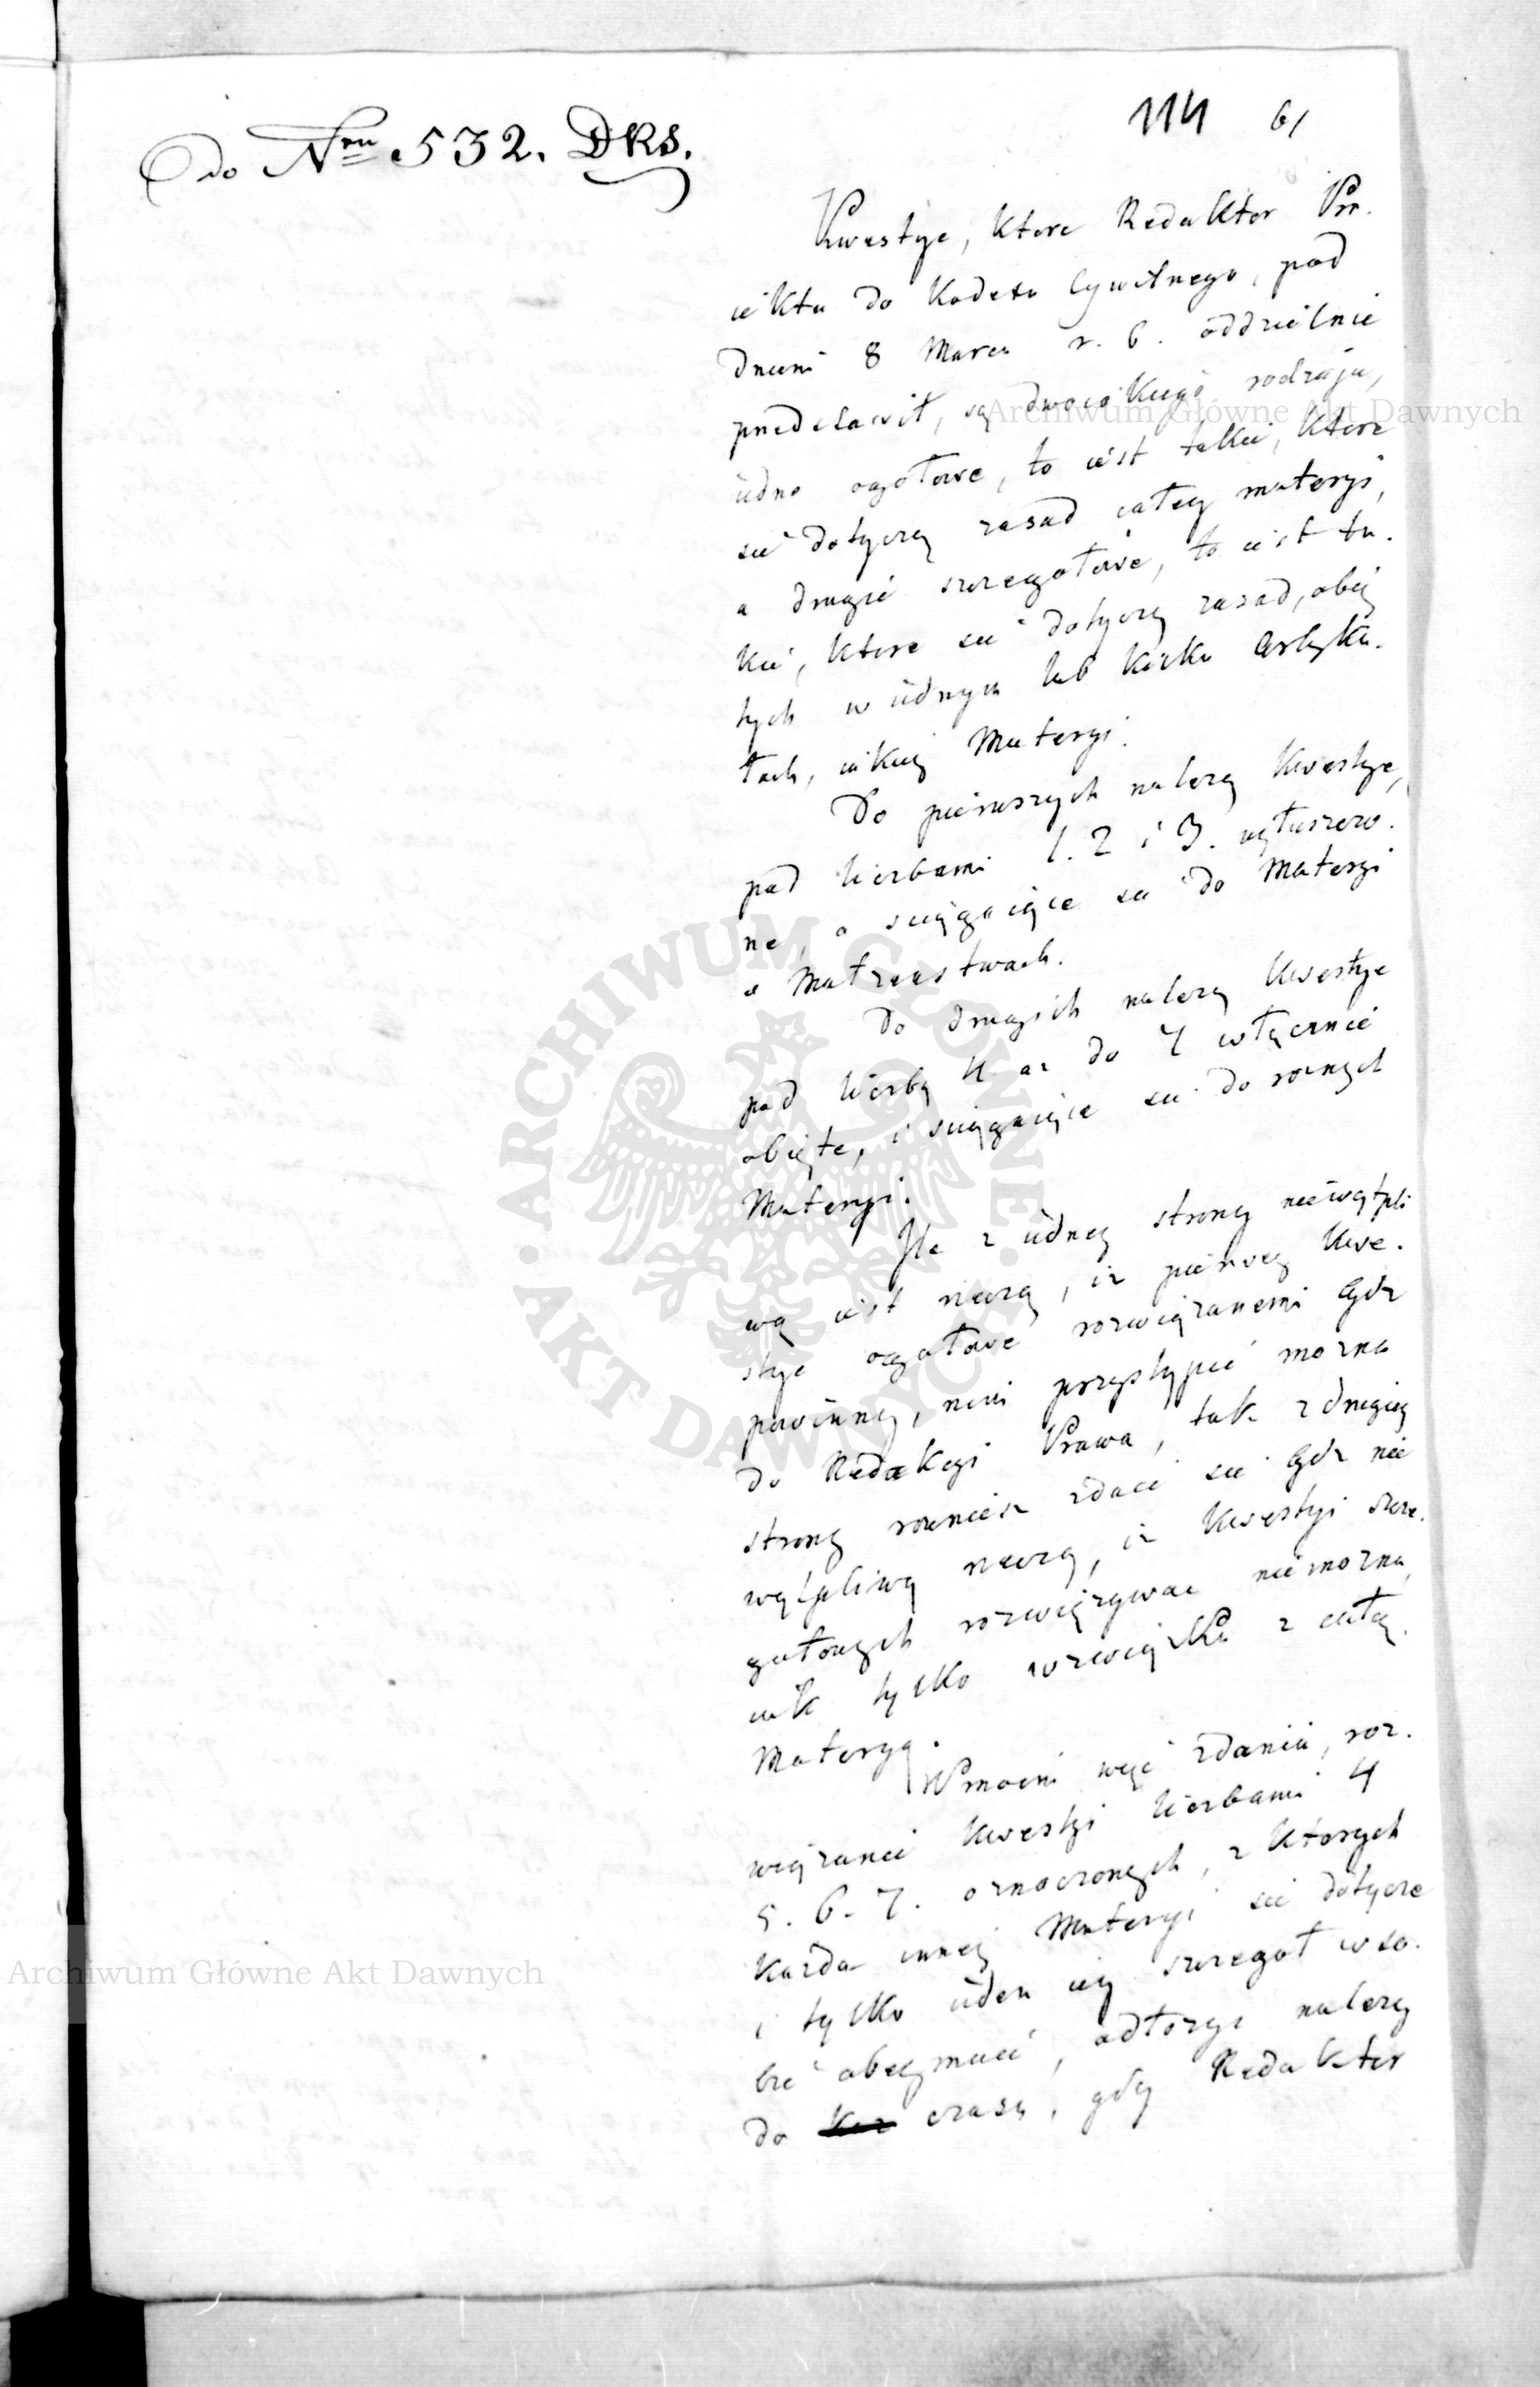 Do Nru 532. DKS.
114 61
Kwestye, ktore Redaktor Pro.
iektu do Kodexu Cywilnego, pod
dniem 8 Marca r. b. oddzielnie
przedstawił, są dwoiakiego rodzaju,
iedne ogołowe, to iest takie, ktore
się dotyczą zasad całey materyi,
a drugie szczegołowe, to iest ta.
kie, ktore się dotyczą zasad, obię
tych w iednym lub kilku Artyku.
łach, iakiey Materyi.
Do pierwszych należą Kwestye,
pod liczbami 1. 2 i 3. wyłuszczo.
ne, a sciągaiące się do Materyi
o Małzenstwach.
Do drugich należą Kwestye
pod liczbą 4 az do 7 włącznie
obięte, i sciągaiące się do roznych
Materyi.
Ile z iedney strony niewątpli
wą iest rzeczą, iz pierwey Kwe.
stye ogołowe rozwiązanemi bydz
powinny, nim przystąpić mozna
do Redakcyi Prawa, tak z drugiey
strony rowniesz zdaie się bydz nie
wątpliwą rzeczą, iz Kwestyi szcze.
gołowych rozwiązywac niemozna,
iak tylko w związku z całą
Materyą.
W moiem więc zdaniu, roz.
wiązanie Kwestyi liczbami 4
5. 6. 7. oznaczonych, z ktorych
kazda inney Materyi się dotycze
i tylko ieden iey szczegoł w so.
bie obeymuie, odłozyc nalezy
do czasu, gdy Redaktor
Archiwum Główne Akt Dawnych
Archiwum Główne Akt Dawnych
· ARCHIWUM GŁÓWNE · AKT DAWNYCH